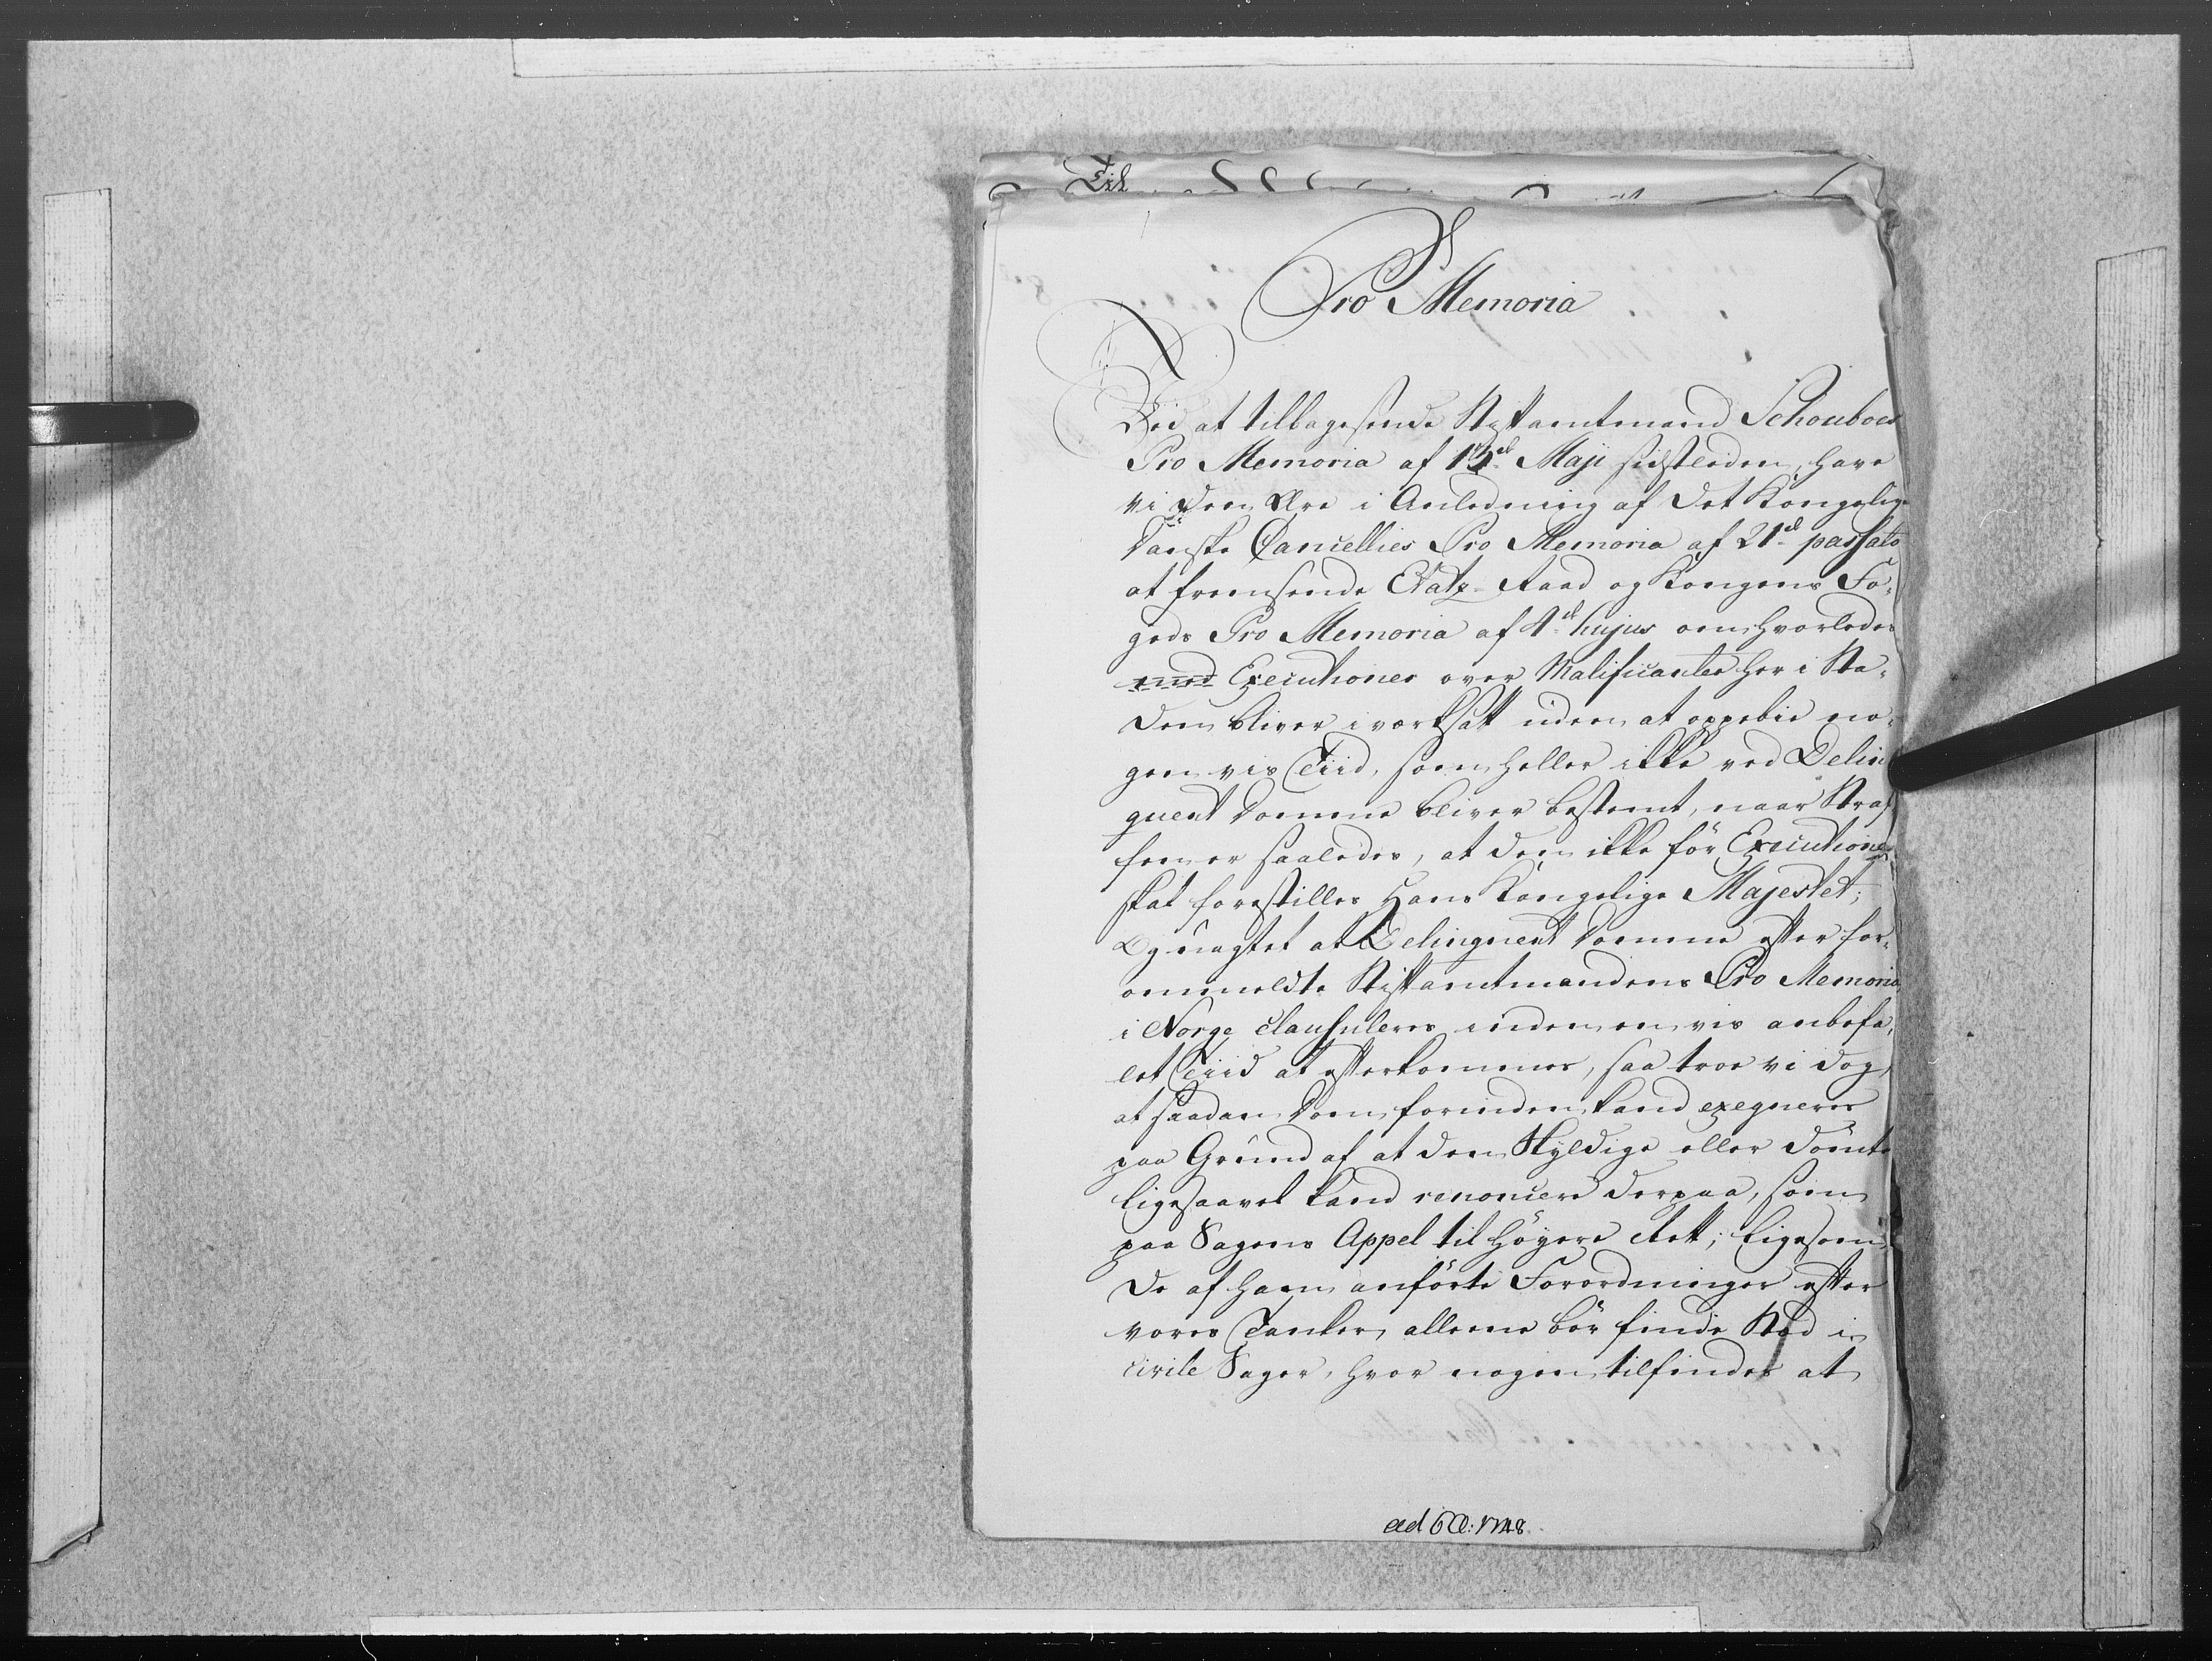 Til
Pro Memoria
Ved at tilbagesende Stiftamtmand Schouboes
Pro Memoria af 15d Maji sidstleden, have
vi den Ære i Anledning af det Kongelige
danske Cancellies Pro Memoria af 21d passato
at fremsende Etatz-Raad og Kongens Fo-
geds Pro Memoria af 4d hujus om hvorledes
med Executioner over Malificanter her i Sta-
den bliver iverksatt uden at oppebie no-
gen vis Tiid, som heller ikke ved Delin
quent Domme bliver bestemt, naar Straf
fen er saaledes, at den ikke før Executionen
skal forestilles Hans Kongelige Majestet;
Og uagtet at Delinquent Domme efter for-
ommeldte Stiftamtmandens Pro Memoria
i Norge clausuleres inden en vis anbefa-
let Tiid at efterkommes, saa troe vi dog,
at saadan Dom forinden kand exeqveres
paa Grund af at den Skyldige eller Dømte
ligesaavel kand renoncere derpaa, som
paa Sagens Appel til høyere Rett; ligesom
de af ham anførte Forordninger efter
vores Tanker allene bør finde Sted i
civile Sager, hvor nogen tilfindes at
ad 6 A: 1748